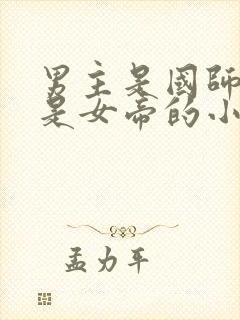 男主是國師
是女帝的小
孟力平